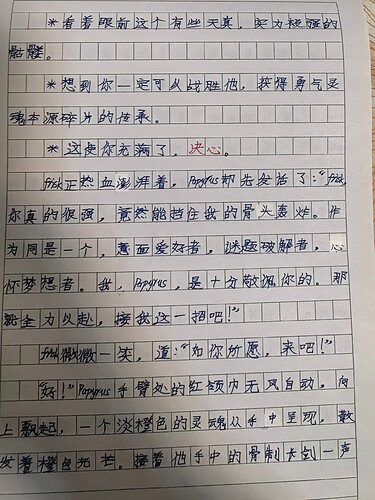 *看着眼前这个有些天真，实力极强的
骷髅。
*想到你一定可以战胜他，获得勇气灵
魂本源碎片的传承。
*这使你充满了，决心。
frisk正热血澎湃着，Papyrus却先发话了：“frisk，
你真的很强，竟然能挡住我的骨头轰炸。作
为同是一个，意面爱好者，谜题破解者，心
怀梦想者。我，Papyrus，是十分敬佩你的。那
就全力以赴，接我这一招吧！”
frisk微微一笑，道：“如你所愿，来吧！”
“好！”Papyrus手臂处的红领巾无风自动，向
上飘起，一个淡橙色的灵魂从手中呈现，散
发着橙色光芒。接着他手中的骨制长剑一声